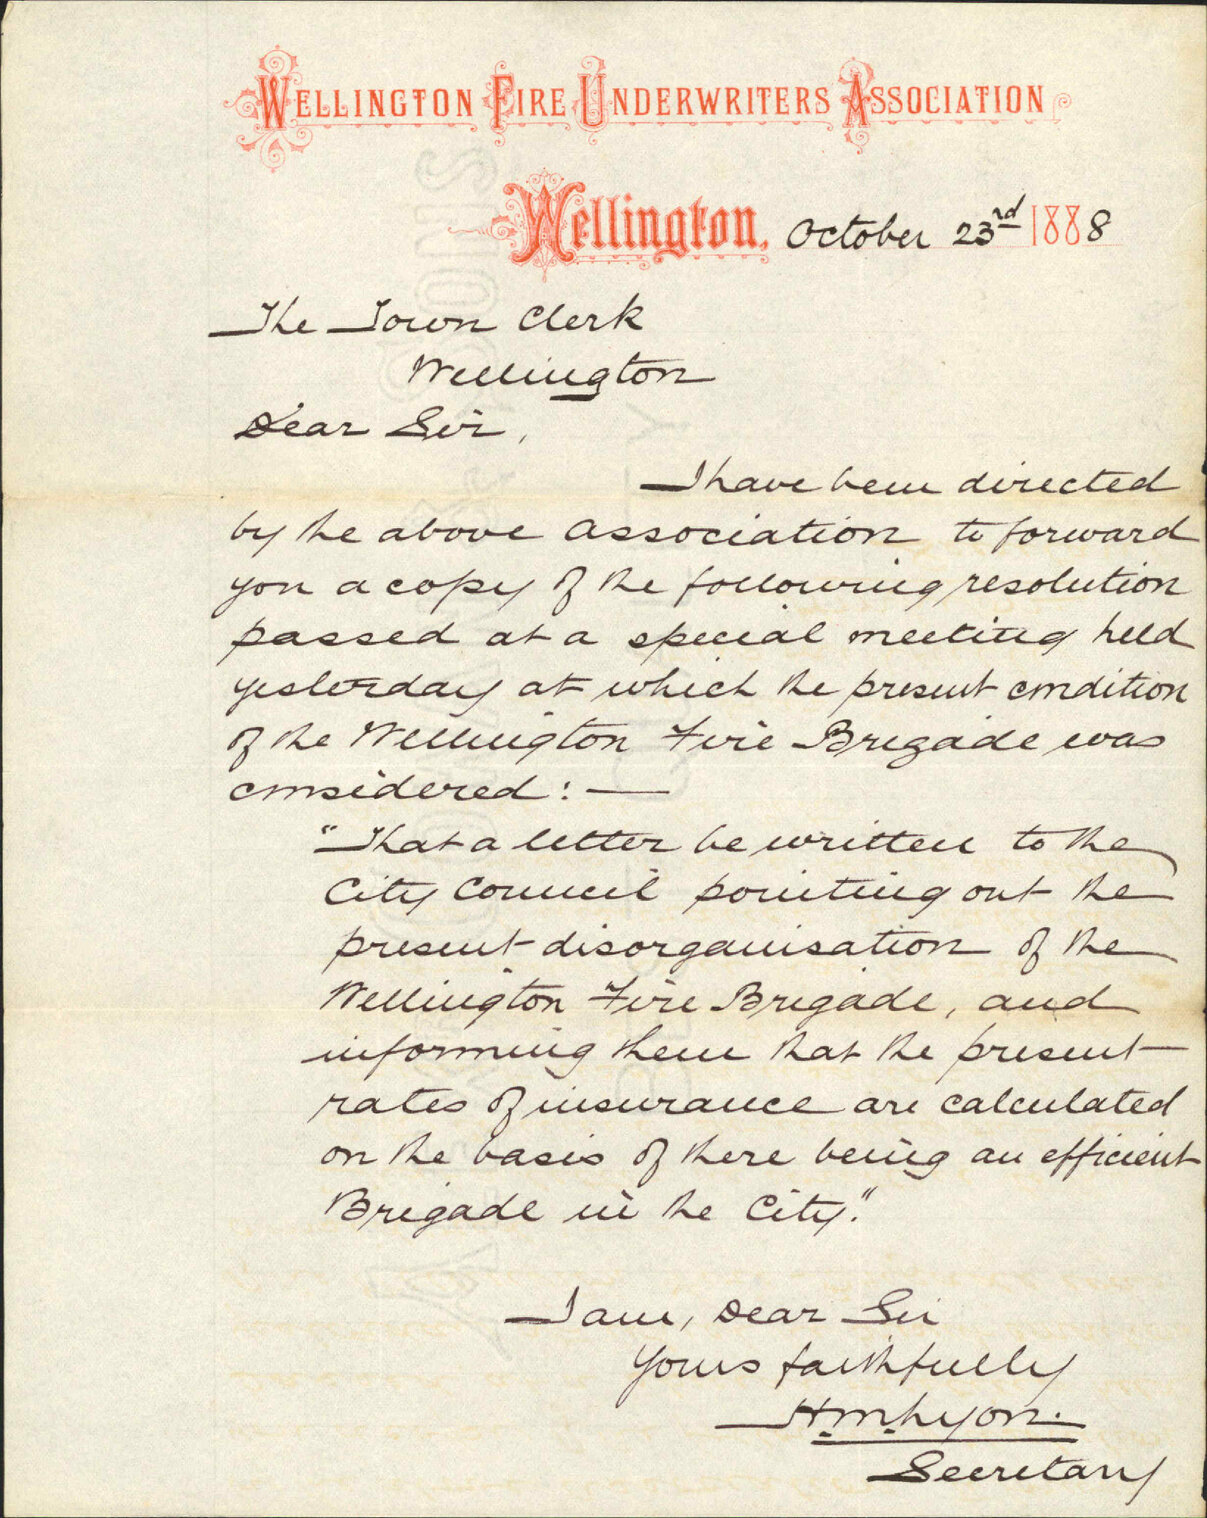 WELLINGTON FIRE UNDERWRITERS ASSOCIATION
Wellington, October 23rd 1888
The Town Clerk
Wellington
Dear Sir,
I have been directed
by the above Association to forward
you a copy of the following resolution
passed at a special meeting held
yesterday at which the present condition
of the Wellington Fire Brigade was
considered: —
"That a letter be written to the
City Council pointing out the
present disorganisation of the
Wellington Fire Brigade, and
informing them that the present
rates of insurance are calculated
on the basis of there being an efficient
Brigade in the City."
I am, Dear Sir
Yours faithfully
H.M. Lyon.
Secretary